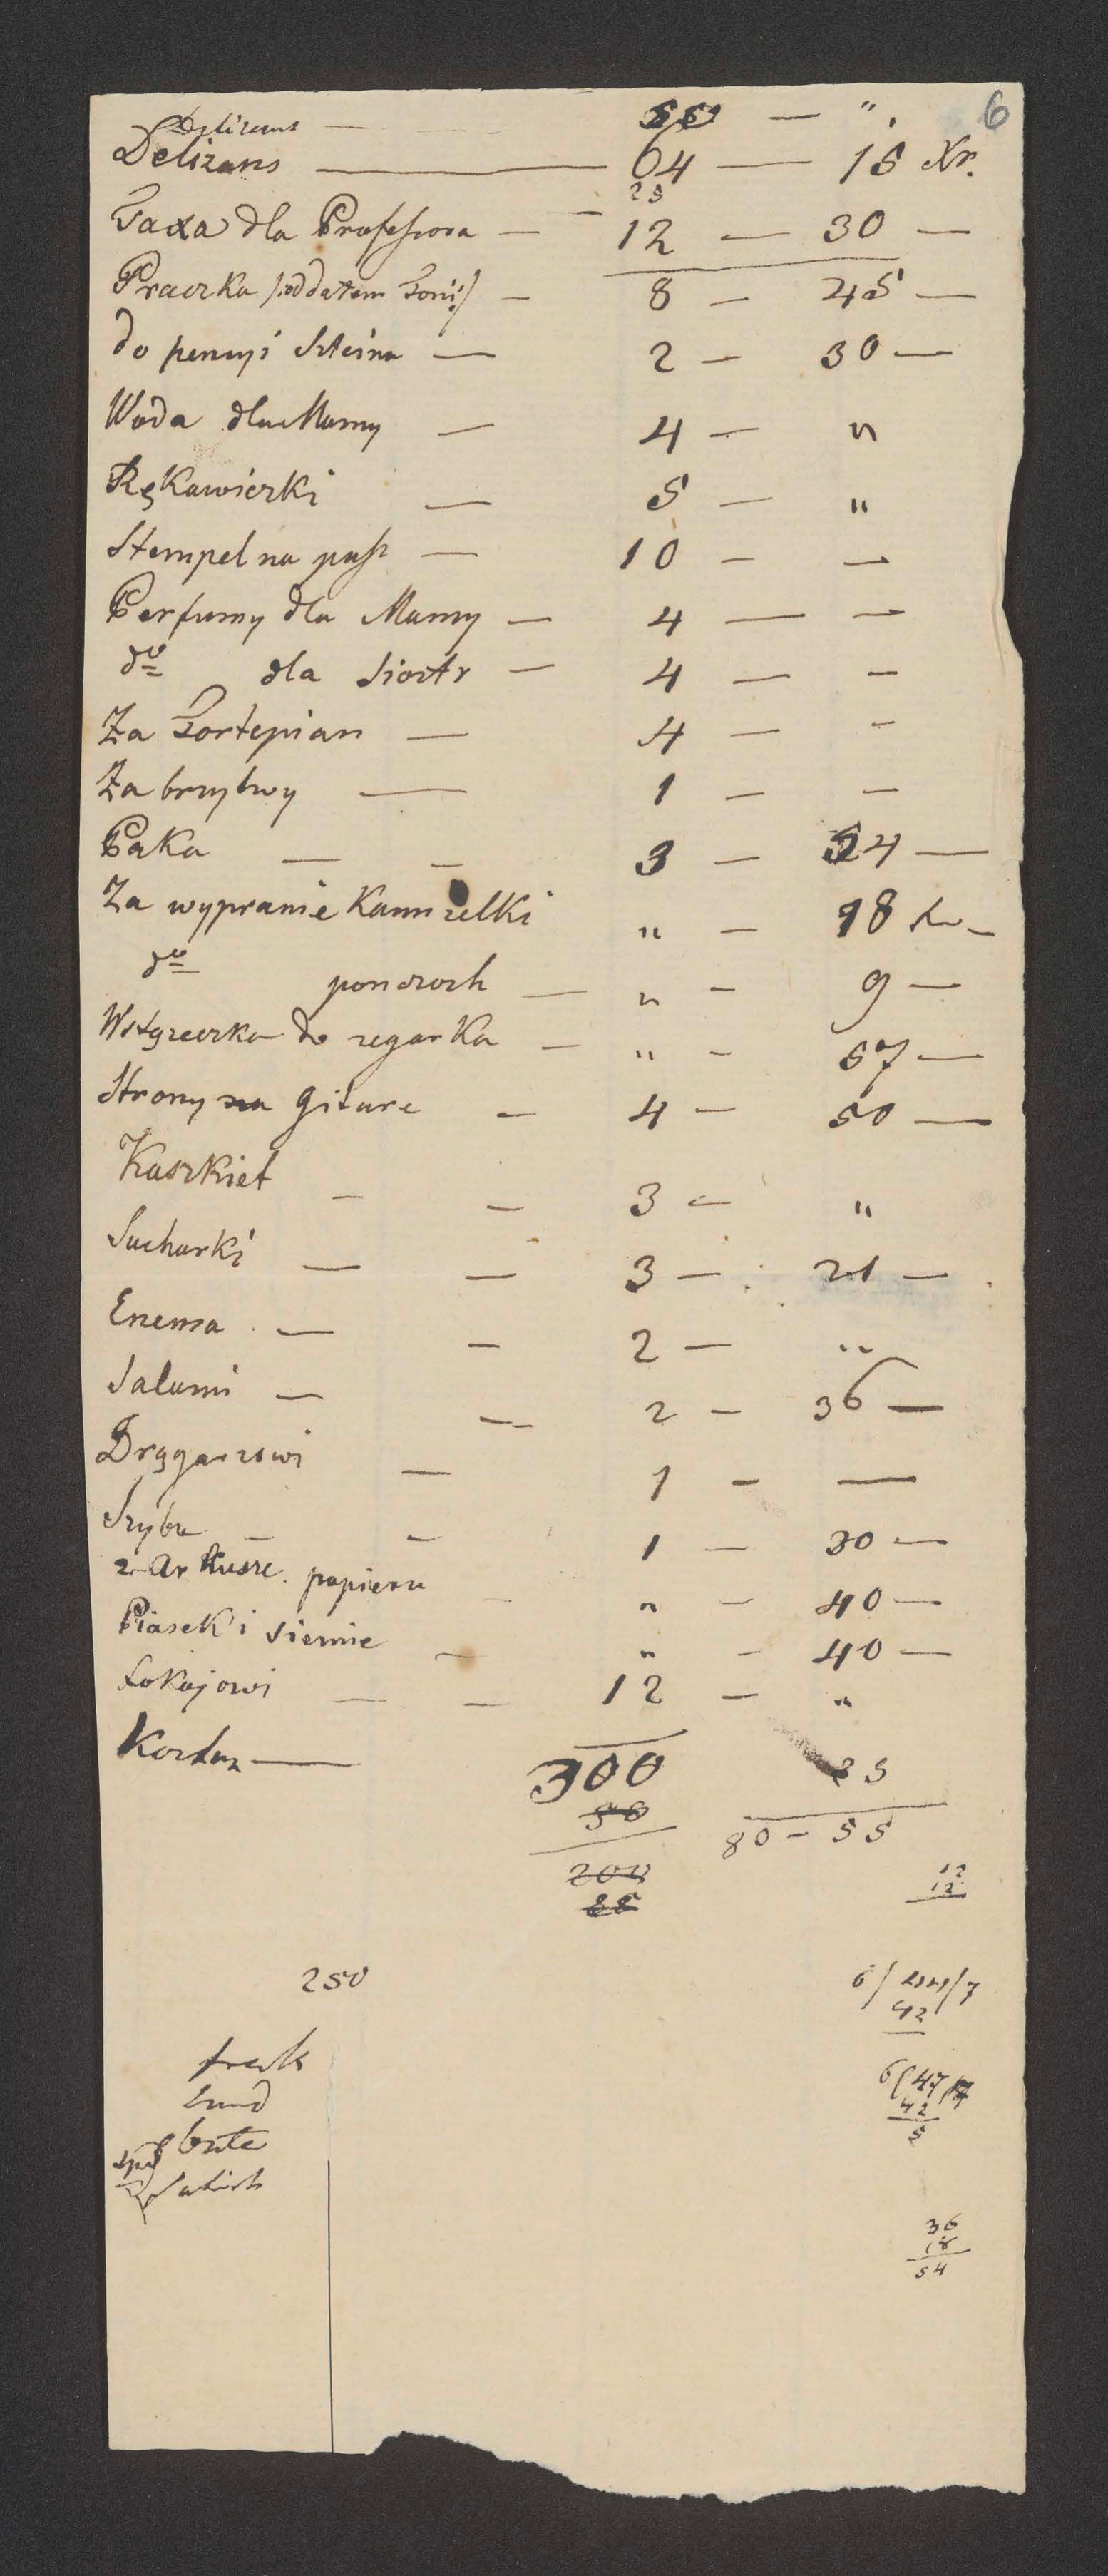 6
Delizans — 50 — " .
Delizans — 64 — 15 Xr.
25
Taxa dla Professora — 12 — 30 —
Praczka /:oddałem Toni:/ — 8 — 45 —
do pensyi Szteina — 2 — 30 —
Woda dla Mamy — 4 — "
Rękawiczki — 5 — "
Stempel na pasz — 10 — —
Perfumy dla Mamy — 4 — —
do dla Siostr — 4 — —
Za Fortepian — 4 — —
Za brzytwy — 1 — —
Paka — — 3 — 24 —
Za wypranie Kamizelki " — 18 —
do ponczoch — " — 9 —
Wstążeczka do zegarka — " — 57 —
Strony na Gitare — 4 — 50 —
Kaszkiet — — 3 — "
Sucharki — — 3 — 21 —
Enema — — 2 — "
Salami — — 2 — 36 —
Drągarzowi — 1 — —
Szyba — — 1 — 30 —
2 Arkusze papieru — " — 40 —
Piasek i siemie — " — 40 —
Lokajowi — — 12 — "
Kordon — 300 25
50 80 - 55
200 12
12
250 6/ /7
42
frak 6/47/7
42
bóte 5
36
18
54